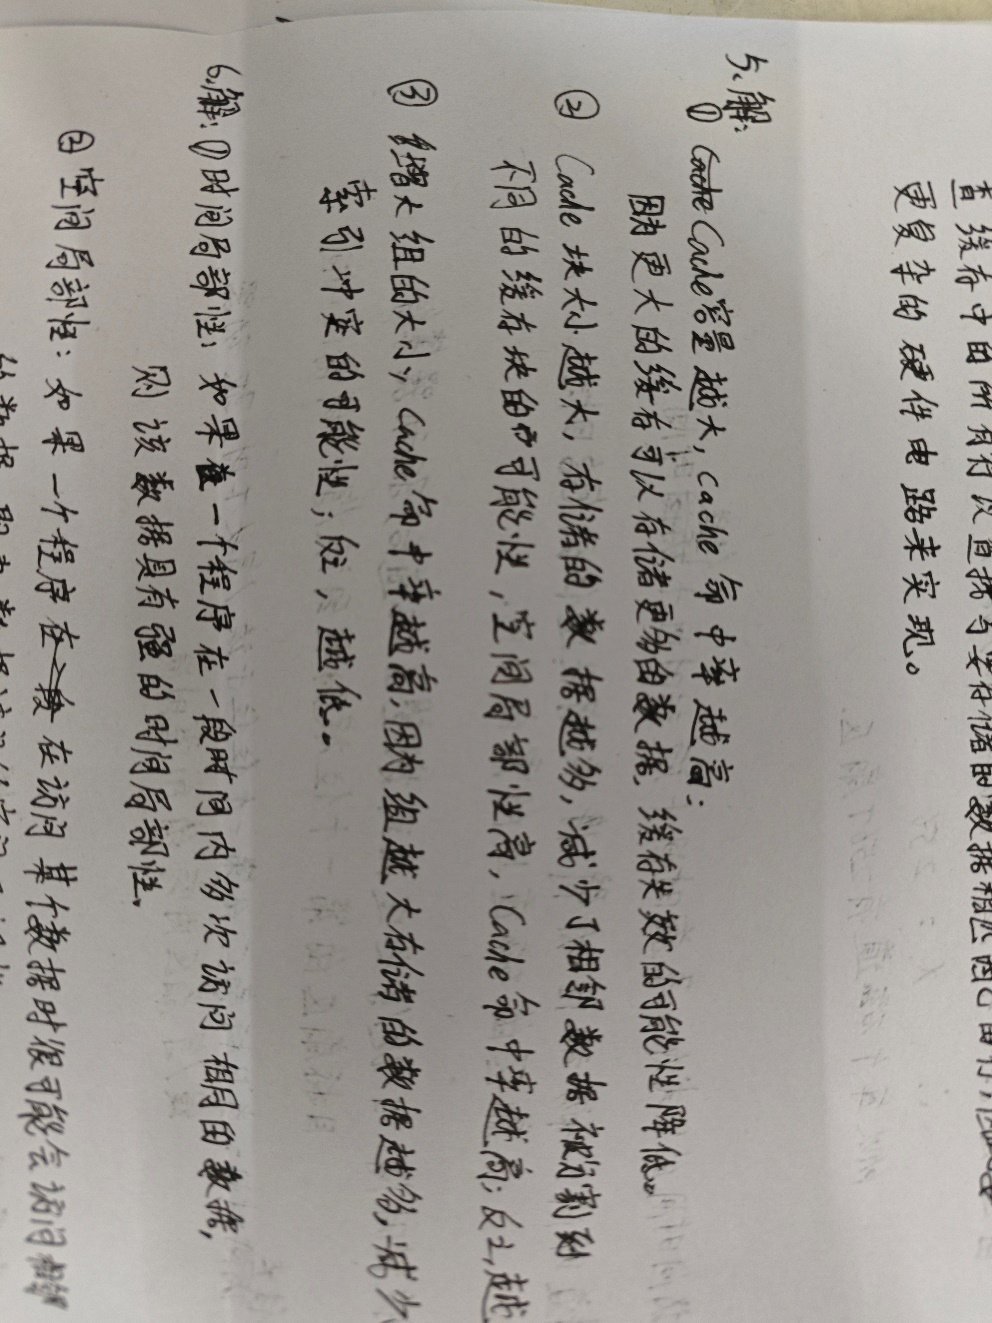 查缓存中的所有行以直接与要存储的数据相匹配的行,
更复杂的硬件电路来实现。
5、解:
① Cache容量越大,cache命中率越高:
因为更大的缓存可以存储更多的数据,缓存失效的可能性降低。
② Cache块大小越大,存储的数据越多,减少了相邻数据被分割到
不同的缓存块的可能性,空间局部性高,Cache命中率越高;反之,越
③ 增大组的大小,Cache命中率越高,因为组越大存储的数据越多,减少
索引冲突的可能性;反之,越低。
6、解:①时间局部性:如果一个程序在一段时间内多次访问相同的数据,
则该数据具有强的时间局部性。
② 空间局部性:如果一个程序在访问某个数据时很可能会访问